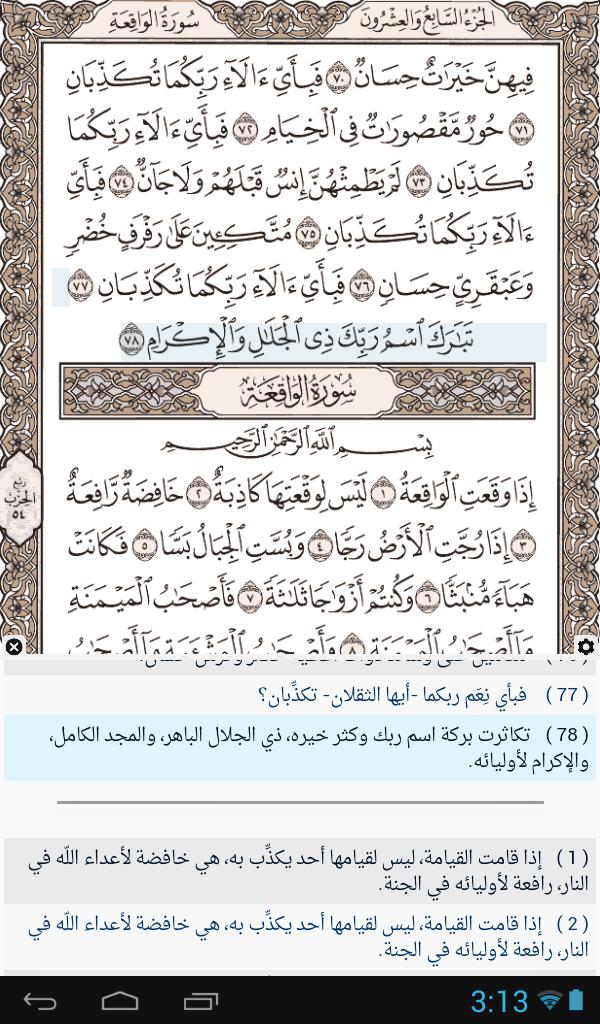 الجزء السابع والعشرون
سورة الواقعة
فِيهِنَّ خَيْرَٰتٌ حِسَانٌ ٧٠ فَبِأَيِّ ءَالَآءِ رَبِّكُمَا تُكَذِّبَانِ
٧١ حُورٌ مَّقْصُورَٰتٌ فِي ٱلْخِيَامِ ٧٢ فَبِأَيِّ ءَالَآءِ رَبِّكُمَا
تُكَذِّبَانِ ٧٣ لَمْ يَطْمِثْهُنَّ إِنسٌ قَبْلَهُمْ وَلَا جَآنٌّ ٧٤ فَبِأَيِّ
ءَالَآءِ رَبِّكُمَا تُكَذِّبَانِ ٧٥ مُتَّكِـِٔينَ عَلَىٰ رَفْرَفٍ خُضْرٍ
وَعَبْقَرِيٍّ حِسَانٍ ٧٦ فَبِأَيِّ ءَالَآءِ رَبِّكُمَا تُكَذِّبَانِ ٧٧
تَبَٰرَكَ ٱسْمُ رَبِّكَ ذِي ٱلْجَلَٰلِ وَٱلْإِكْرَامِ ٧٨
سورة الواقعة
بِسْمِ ٱللَّهِ ٱلرَّحْمَٰنِ ٱلرَّحِيمِ
إِذَا وَقَعَتِ ٱلْوَاقِعَةُ ١ لَيْسَ لِوَقْعَتِهَا كَاذِبَةٌ ٢ خَافِضَةٌ رَّافِعَةٌ
٣ إِذَا رُجَّتِ ٱلْأَرْضُ رَجًّا ٤ وَبُسَّتِ ٱلْجِبَالُ بَسًّا ٥ فَكَانَتْ
هَبَآءً مُّنۢبَثًّا ٦ وَكُنتُمْ أَزْوَٰجًا ثَلَٰثَةً ٧ فَأَصْحَٰبُ ٱلْمَيْمَنَةِ
مَآ أَصْحَٰبُ ٱلْمَيْمَنَةِ ٨ وَأَصْحَٰبُ ٱلْمَشْـَٔمَةِ مَآ أَصْحَٰبُ
ربع
الحزب
٥٤
(77) فبأي نِعَم ربكما -أيها الثقلان- تكذِّبان؟
(78) تكاثرت بركة اسم ربك وكثر خيره، ذي الجلال الباهر، والمجد الكامل،
والإكرام لأوليائه.
(1) إذا قامت القيامة، ليس لقيامها أحد يكذِّب به، هي خافضة لأعداء اللّه في
النار، رافعة لأوليائه في الجنة.
(2) إذا قامت القيامة، ليس لقيامها أحد يكذِّب به، هي خافضة لأعداء اللّه في
النار، رافعة لأوليائه في الجنة.
3:13